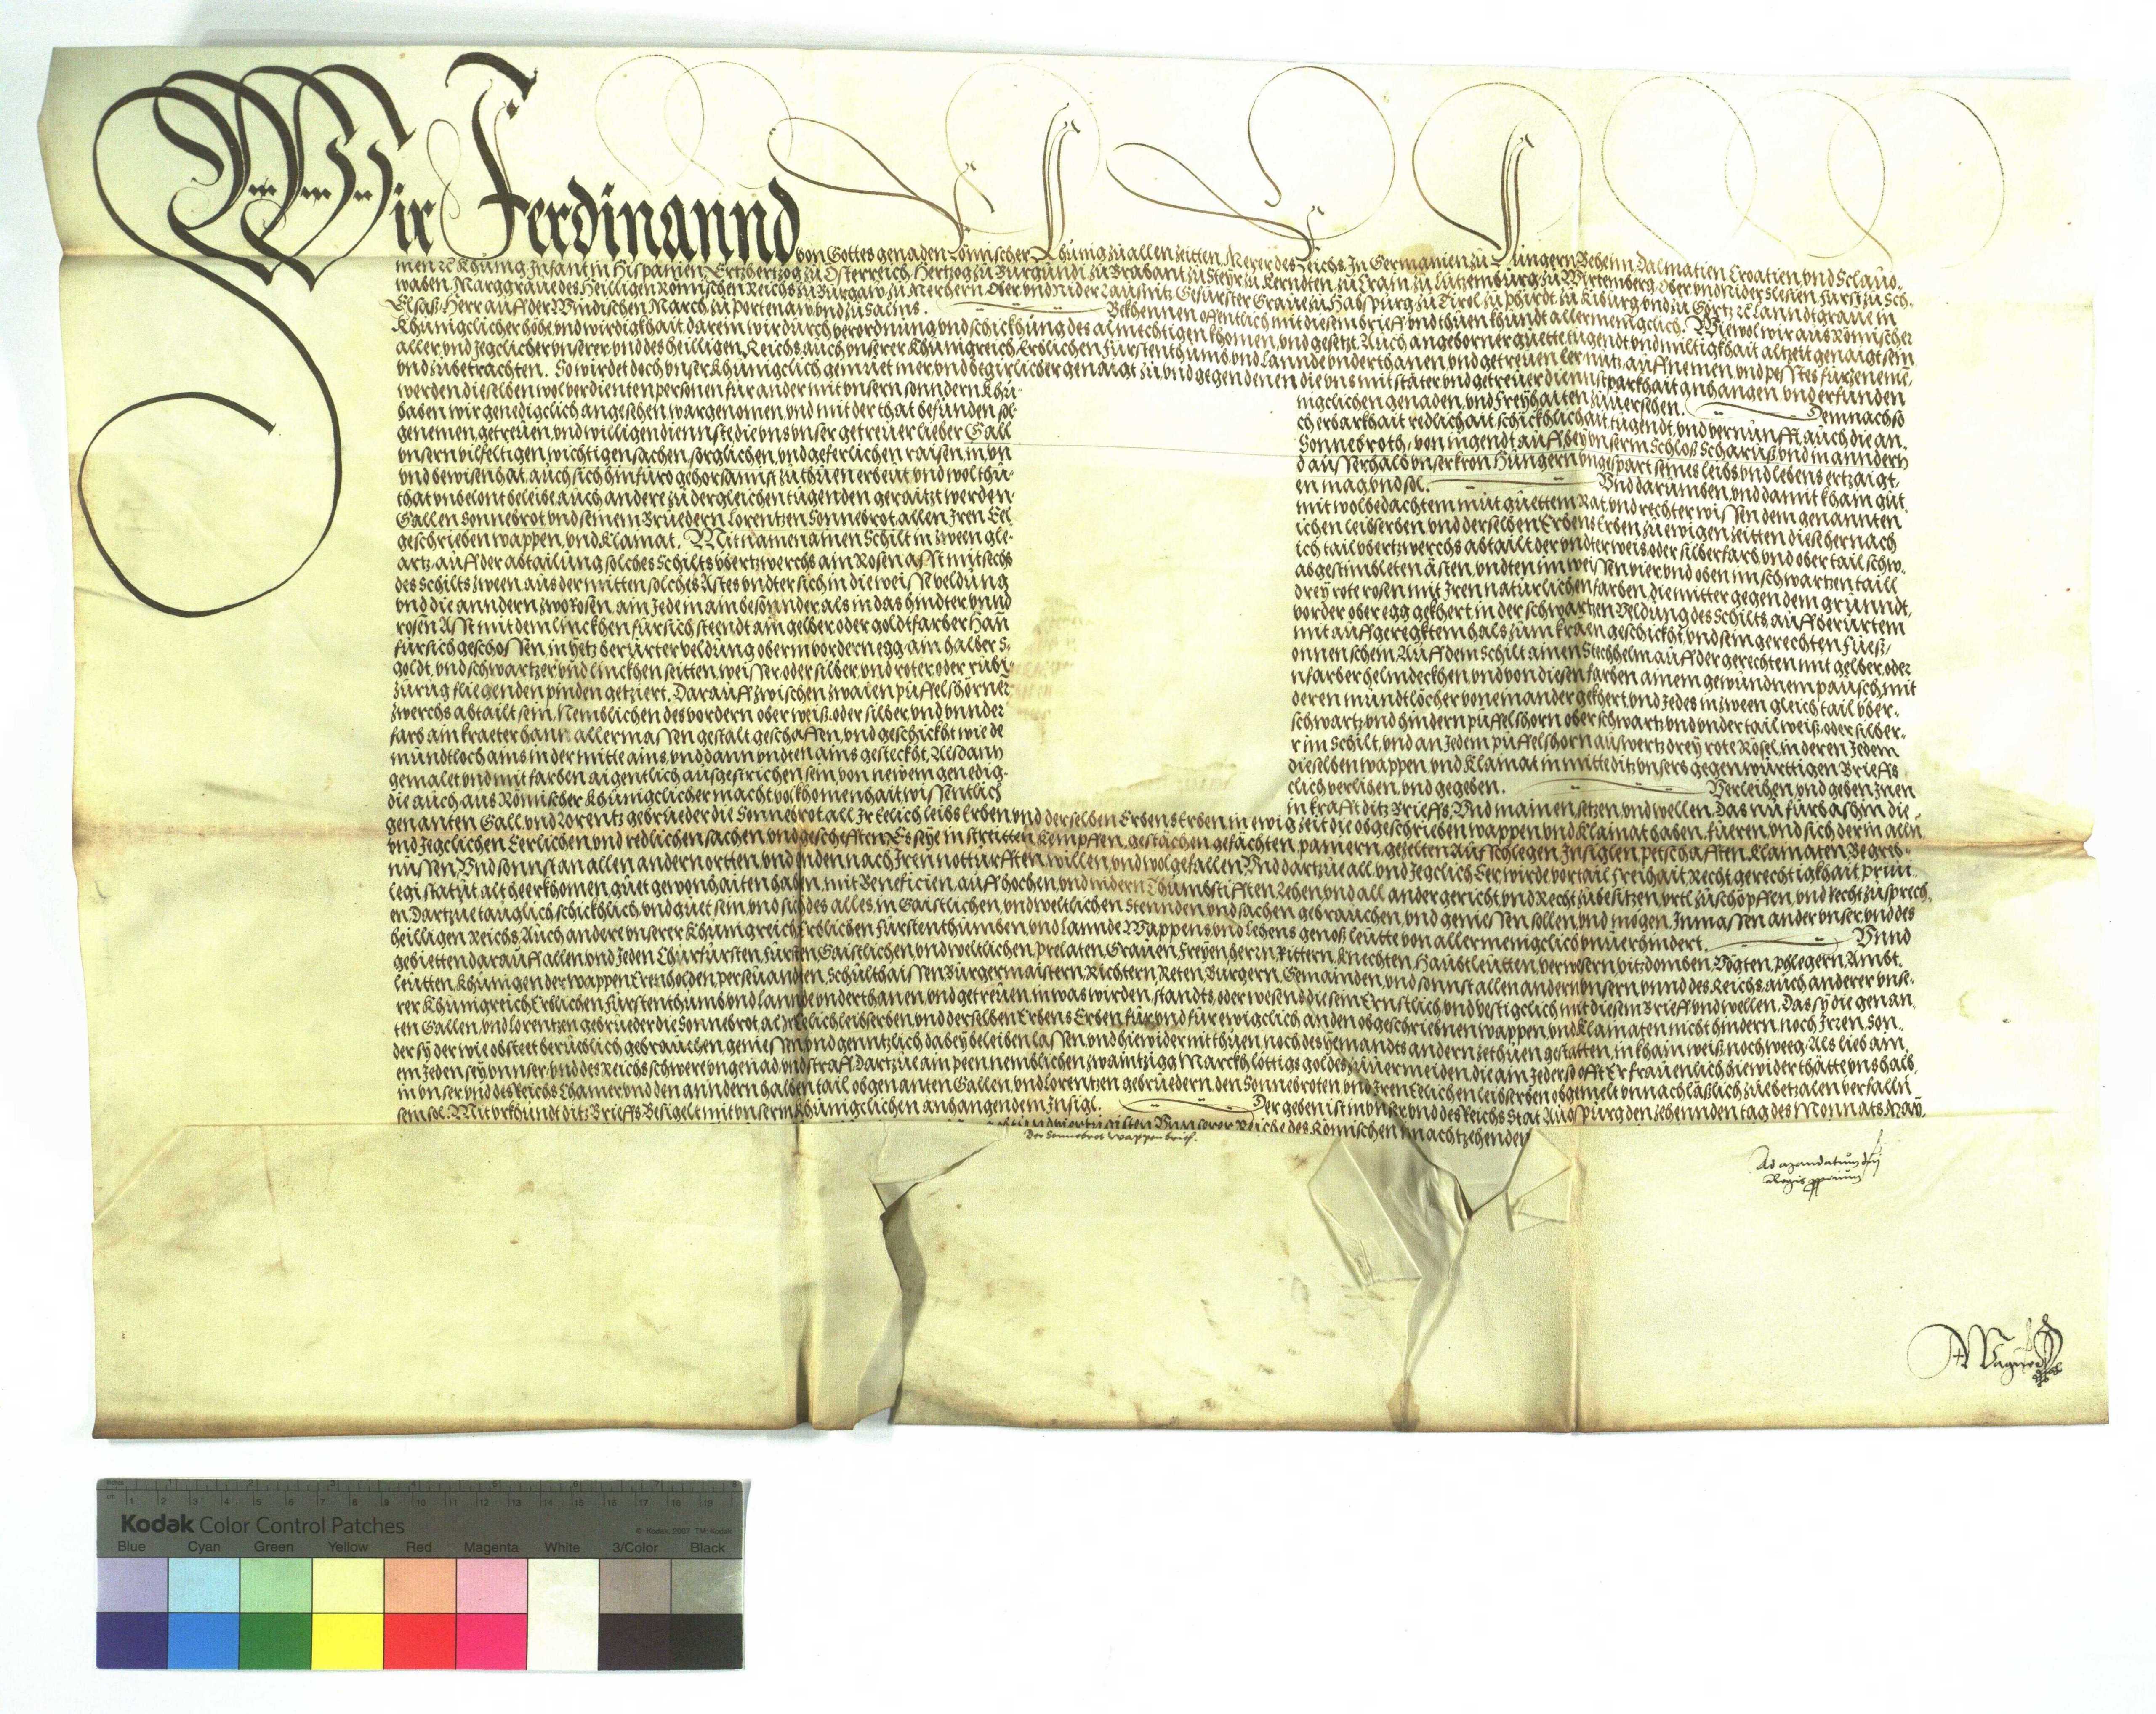 Wir Ferdinannd von Gottes genaden Römischer Khunig zu allen zeitten Merer des Reichs, In Germanien zu Hungern Beheim Dalmatien Croatien vnd Sclauo-
nien ꝛc Khunig Infant in Hispanien, Ertzhertzog zu Österreich, Hertzog zu Burgundi zu Brabant zu Steyr zu Kerndten zu Crain zu Lutzemburg zu Wirtemberg Ober vnd Nider Slesien, Furst zu Sch-
waben, Marggraue des Heilligen Römischen Reichs zu Burgaw zu Merhern Ober vnd Nider Lausnitz Gefurster Graue zu Habspurg zu Tirol zu Phirdt zu Kiburg vnd zu Görtz ꝛc Lanndtgraue in
Elsaß Herr auff der Windischen March zu Portenaw vnd zu Salins. Bekhennen offentlich mit diesem brieff vnd thuen khundt allermeniglich. Wiewol wir aus Römischer
Khuniglicher höhe vnd wirdigkhait darein wir durch verordnung vnd schickhung des almechtigen khomen, vnd gesetzt, Auch angeborner guette tugendt vnd miltigkhait altzeit genaigt sein
aller vnd yeglicher vnserer vnd des heilligen Reichs auch vnserer Khunigreich Erblichen Furstenthumb vnd Lannde vnderthanen vnd getreuen Eer nutz auffnemen vnd pesstes furzenemen
vnd zubetrachten. So wirdet doch vnser Khuniglich gemuet mer vnd begirlicher genaigt zu vnd gegen denen die vns mit stäter vnd getreuer diennstparkhait anhangen, vnd erfunden
werden dieselben wolverdienten personen fur ander mit vnsern sonndern Khu-
niglichen genaden, vnd Freyhaiten zuuersehen. Demnach so
haben wir genediglich angesehen wargenomen, vnd mit der that befunden sol-
cher erbarkhait redlichait schickhlichait tugendt vnd vernunfft auch die an-
genemen, getreuen, vnd willigen diennste die vns vnser getreuer lieber Gall
Sonnebroth, von jugendt auff bey vnserm Schloß Scharuß vnd in anndern
vnsern vilfeltigen wichtigen sachen sorglichen, vnd geferlichen raisen, in vn
d ausserhalb vnser kron Hungern vngespart seines leibs vnd lebens ertzaigt,
vnd bewisen hat, auch sich hinfuro gehorsamist zuthuen erbeut vnd wol thu-
en mag vnd sol. Vnd darumben, vnd damit kham gut
that vnbelont beleibe auch andere zu dergleichen tugenden geraitzt werden
mit wolbedachtem muet guettem Rat vnd rechter wissen dem genannten
Gallen Sonnebrot vnd seinem Bruedern Lorentzen Sonnebrot allen Iren Eel-
ichen leibserben vnd derselben Erbens Erben zu ewigen zeitten diese hernach
geschrieben wappen, vnd Klainat. Mit namen ainen Schilt in zween gle-
ich tail vbertzwerchs abtailt der vndter weis oder silberfarb vnd ober tail schw-
artz auff der abtailung solches Schilts vbertzwerchs ain Rosen asst mit sechs
abgestimbleten ästen, vndten im weissen vier vnd oben im schwartzen taill
des Schilts zween aus der mitten solches Astes vndter sich in die weisse veldung
drey rote rosen mit Iren naturlichen farben, die mitter gegen dem grunndt,
vnd die anndern zwo Rosen, ain Jede in ain besonnder als in das hindter vnnd
vorder ober egg gekhert in der schwartzen Veldung des Schilts auff berurtem
rosen Asst mit dem linckhen fur sich steendt ain gelber oder goldtfarber Han
mit auffgeregktem hals zum kraen geschickht vnd sein gerechten Fueß
fur sich geschossen in yetz berurter veldung ober im vordern egg ain halber S-
onnenschein Auff dem Schilt ainen Stechhelm auff der gerechten mit gelber oder
goldt, vnd schwartzer vnd linckhen seitten weisser oder silber vnd roter oder rubi-
nfarber helmdeckhen, vnd von diesen farben ainem gewundnem pausch mit
zurug fliegenden pinden getziert. Darauff zwischen zwaien puffelshörner
deren mundtlöcher voneinander gekhert vnd Jedes in zween gleich tail vber-
zwerchs abtailt sein, Nemblichen des vordern ober weiß oder silber vnd vnnder
schwartz vnd hindern puffelshorn ober schwartz vnd vnder tail weiß oder silber-
farb ain kraeter hann aller massen gestalt geschaffen vnd geschickht wie de
r im Schilt, vnd an Jedem puffelshorn auswertz drey rote Rosel in deren Jedem
mundtloch ains in der mitte ains, vnd dann vndten ains gesteckht. Alsdann
dieselben wappen, vnd Klainat in mitte ditz vnsers gegenwurttigen Brieffs
gemalet vnd mit farben aigentlich ausgestrichen sein, von newem genedig-
clich verlihen, vnd gegeben. Verleihen, vnd geben Inen
die auch aus Römischer Khuniglicher macht volkhomenhait wissentlich
in krafft ditz Brieffs, Vnd mainen, setzen, vnd wellen. Das nu furbashin die
genanten Gall, vnd Lorentz gebrueder die Sonnebrot all Ir Eelich leibs Erben vnd derselben Erbens Erben, in ewig zeit die obgeschrieben wappen vnd Klainat haben, fueren, vnd sich der in alln
vnd yeglichen Eerlichen vnd redlichen sachen, vnd geschefften, Es seye in streitten Kempffen, gestächen, gefächten, panirn, gezelten Auffschlegen Insiglen, petschafften Klainaten Begreb-
nussen, Vnd sonnst an allen andern ortten, vnd enden nach Iren notturfften, willen, vnd wolgefallen Vnd dartzu all vnd yeglich Eer wirde vortail Freihait Recht gerechtigkhait priui-
legi statut altheerkhomen, guet gewonhaiten haben, mit Beneficien auff hochen vnd nidern Thumbstifften Lehen vnd all ander gericht vnd Recht zubesitzen, vrtl zuschöpffen vnd Recht zusprech-
en Dartzue tauglich schickhlich, vnd guet sein, vnd sich des alles, in Gaistlichen, vnd weltlichen Stennden vnd sachen gebrauchen, vnd geniessen sollen vnd mögen. Inmassen ander vnser vnd des
heilligen Reichs, Auch andere vnserer Khunigreich Erblichen Furstenthumben vnd Lannde Wappens vnd Lehens genoß leutte von allermeniglich vnuerhindert. Vnnd
gebietten darauff allen vnd Jeden Churfursten, Fursten Gaistlichen vnd weltlichen, prelaten Grauen Freyen herrn Rittern, Knechten, Haubtleutten, verwesern vitzdomben Vögten, phlegern Ambt-
leutten, Khunigen der wappen Erenholden, perseuandten, Schulthaissen Burgermaistern, Richtern, Reten Burgern, Gemainden, vnd sonnst allen andern vnsern vnnd des Reichs auch anderer vnse-
rer Khunigreich Erblichen Furstenthumb vnd lannde vnderthanen, vnd getreuen, in was wirden, standts oder wesens die sein Ernstlich vnd vestiglich mit diesem Brieff vnd wellen. Das sy die genan-
ten Gallen, vnd Lorentzen gebrueder die Sonnebrot al Ir Eelich leibserben, vnd derselben Erbens Erben fur vnd fur ewiglich an den obgeschriebnen wappen vnd Klainaten nicht hindern, noch Irren, son-
der sy der wie obsteet berueblich gebrauchen, geniessen, vnd genntzlich dabey beleiben lassen, vnd hiewider nit thuen, noch des yemandts andern zethuen gestatten, in khain weiß noch weeg. Als lieb ain-
em Jeden sey vnnser, vnd des Reichs schwere vngenad, vnd straff Dartzue ain peen nemblichen zwaintzigg Marckh löttigs goldes zuuermeiden, die ain Jeder so offt Er frauenlich hiewider thätte vns halb
in vnser vnd des Reichs Chamer vnd den anndern halben tail obgenanten Gallen, vnd Lorentzen gebruedern den Sonnebroten vnd Iren Eelichen leibserben obgemelt vnnachläßlich zubetzalen verfalln
sein sol. Mit vrkhundt ditz Brieffs Besigelt mit vnserm Khuniglichen anhangendem Insigl. Der geben ist in vnser vnd des Reichs Stat Augspurg den zehennden tag des Monnats May
achtundviertzigisten Vnnserer Reiche des Römischen im achtzehenden
Der Sonnebrot Wappenbrief.
Ad mandatum dni
Regis proprium
Kodak Color Control Patches
© Kodak, 2007 TM: Kodak
Blue Cyan Green Yellow Red Magenta White 3/Color Black